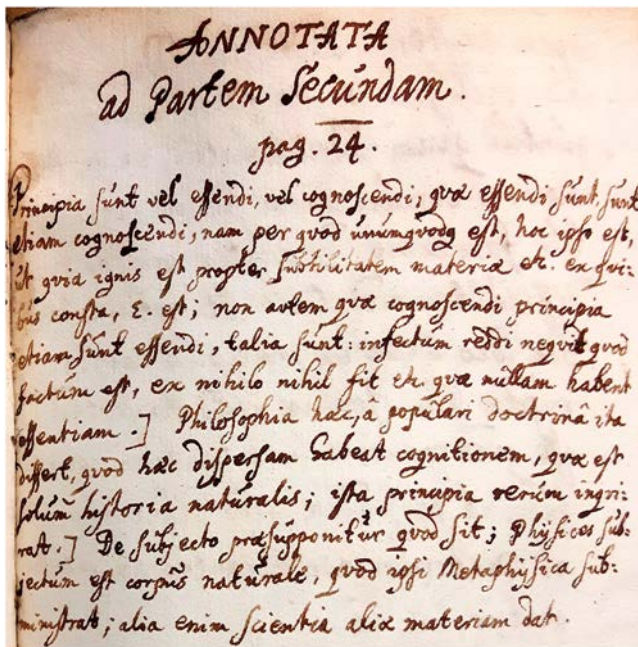 ANNOTATA
ad Partem Secundam.
pag. 24.
Principia sunt vel essendi, vel cognoscendi; quæ essendi sunt, sunt
etiam cognoscendi, nam per quod unumquodq est, hoc ipso est,
ut quia ignis est propter subtilitatem materiæ etc. ex qui:
bus consta, E. est; non autem quæ cognoscendi principia
etiam sunt essendi, talia sunt: infectum reddi nequit quod
factum est, ex nihilo nihil fit etc. quæ nullam habent
essentiam.] Philosophia hæc, â populari doctrinâ ita
differt, quod hæc dispersam habeat cognitionem, quæ est
solum historia naturalis; ista principia rerum inqui:
rat.] De subjecto præsupponitur quod sit; Physices sub:
jectum est corpus naturale, quod ipsi Metaphysica sub:
ministrat; alia enim scientia aliæ materiam dat.